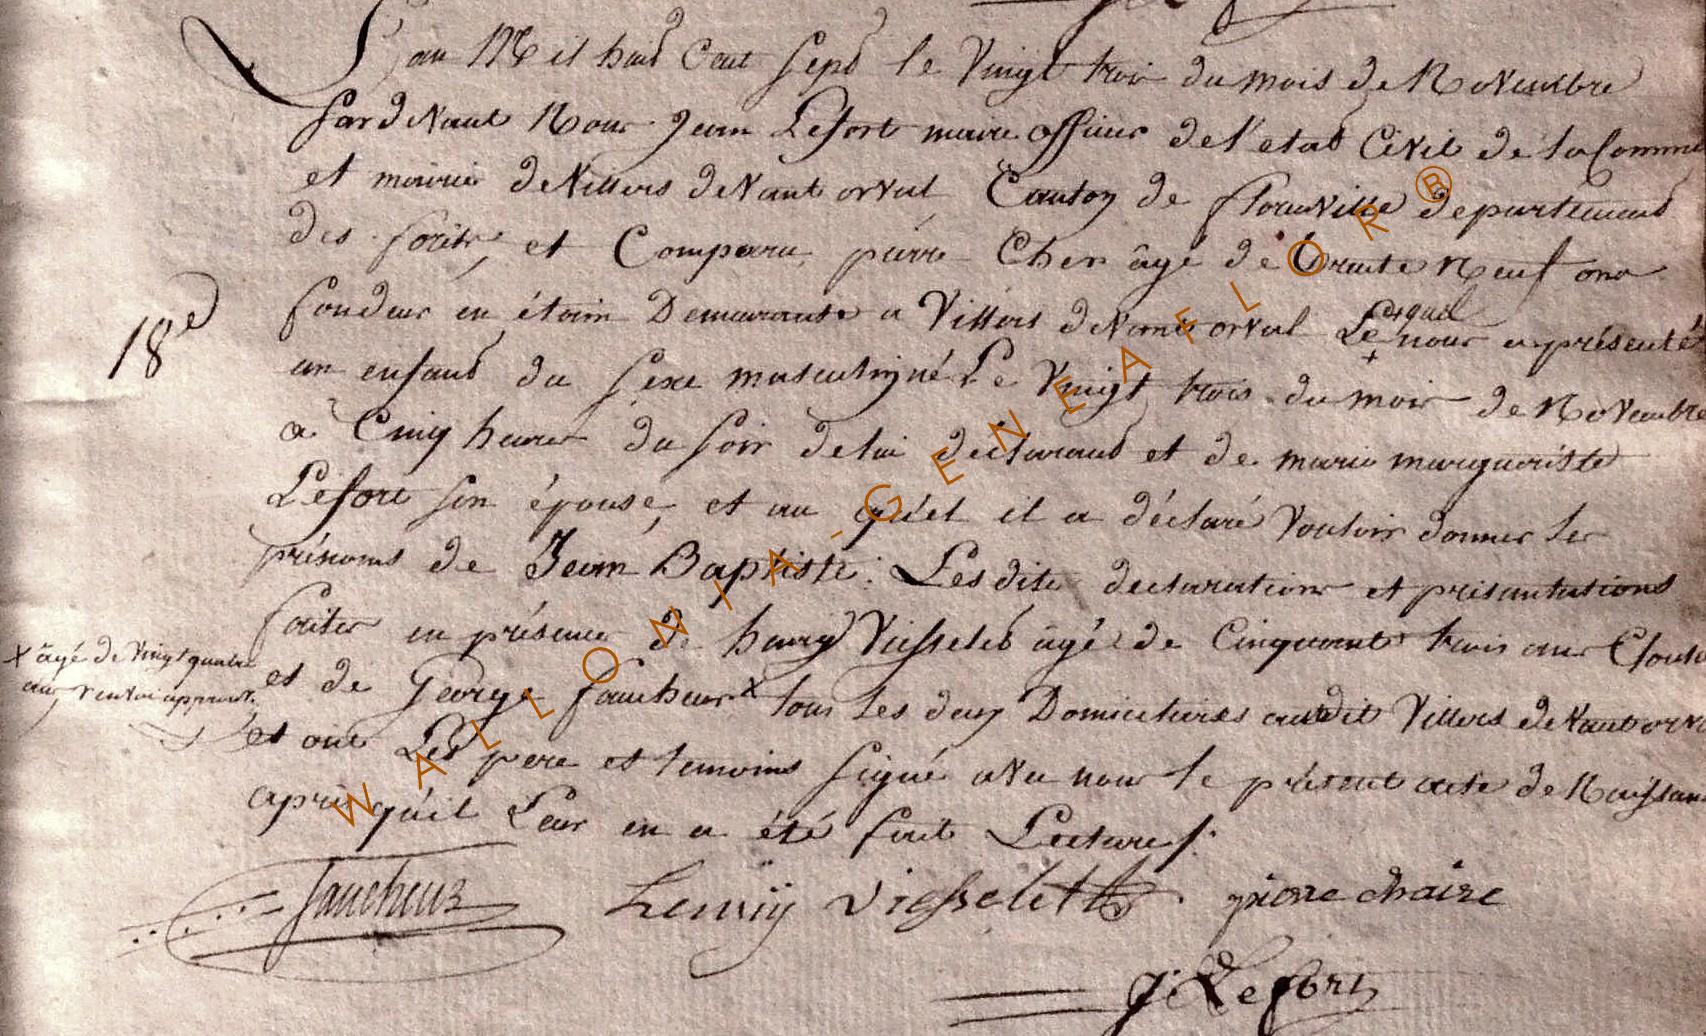 L'an Mil huit Cent Sept le Vingt trois du mois de Novembre
Pardevant Nous Jean Lefort maire officier de l'etat Civil de la Commune
et mairie de Villers devant orval Canton de florenville departement
des forêts, et Comparu, pierre Cher âgé de Trente Neuf ans
fondeur en étain Demeurante a Villers devant orval Lequel nous a présenté
18e
un enfant du Sexe masculin né Le Vingt trois du mois de Novembre
à Cinq heures du soir de lui déclarant et de marie marguerite
Lefort son épouse, et au quel il a déclaré Vouloir donner les
prénoms de Jean Baptiste. Lesdite declarations et présentations
faites en présence de henry Visselet âgé de Cinquante trois ans
x âgé de Vingt quatre
ans renvoi approuvé.
et de George faucheur x tous les deux Domiciliés audit Villers devant orval
et ont Les pere et temoins signé avec nous le présent acte de Naissance
après qu'il Leur en a été fait Lecture.
faucheur henrÿ visselette pierre chaire
J. Lefort
WALLONIA-GENEAFLOR®